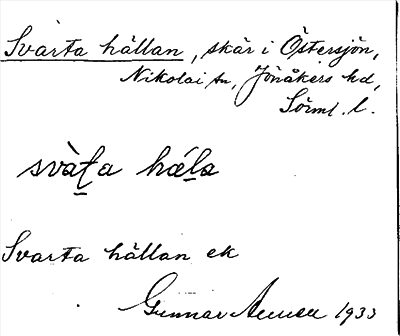 Svarta hällan, skär i Östersjön,
Nikolai sn, Jönåkers hd,
Sörml. l.
svàt̲a hál̲a
Svarta hällan ek
Gunnar 1933